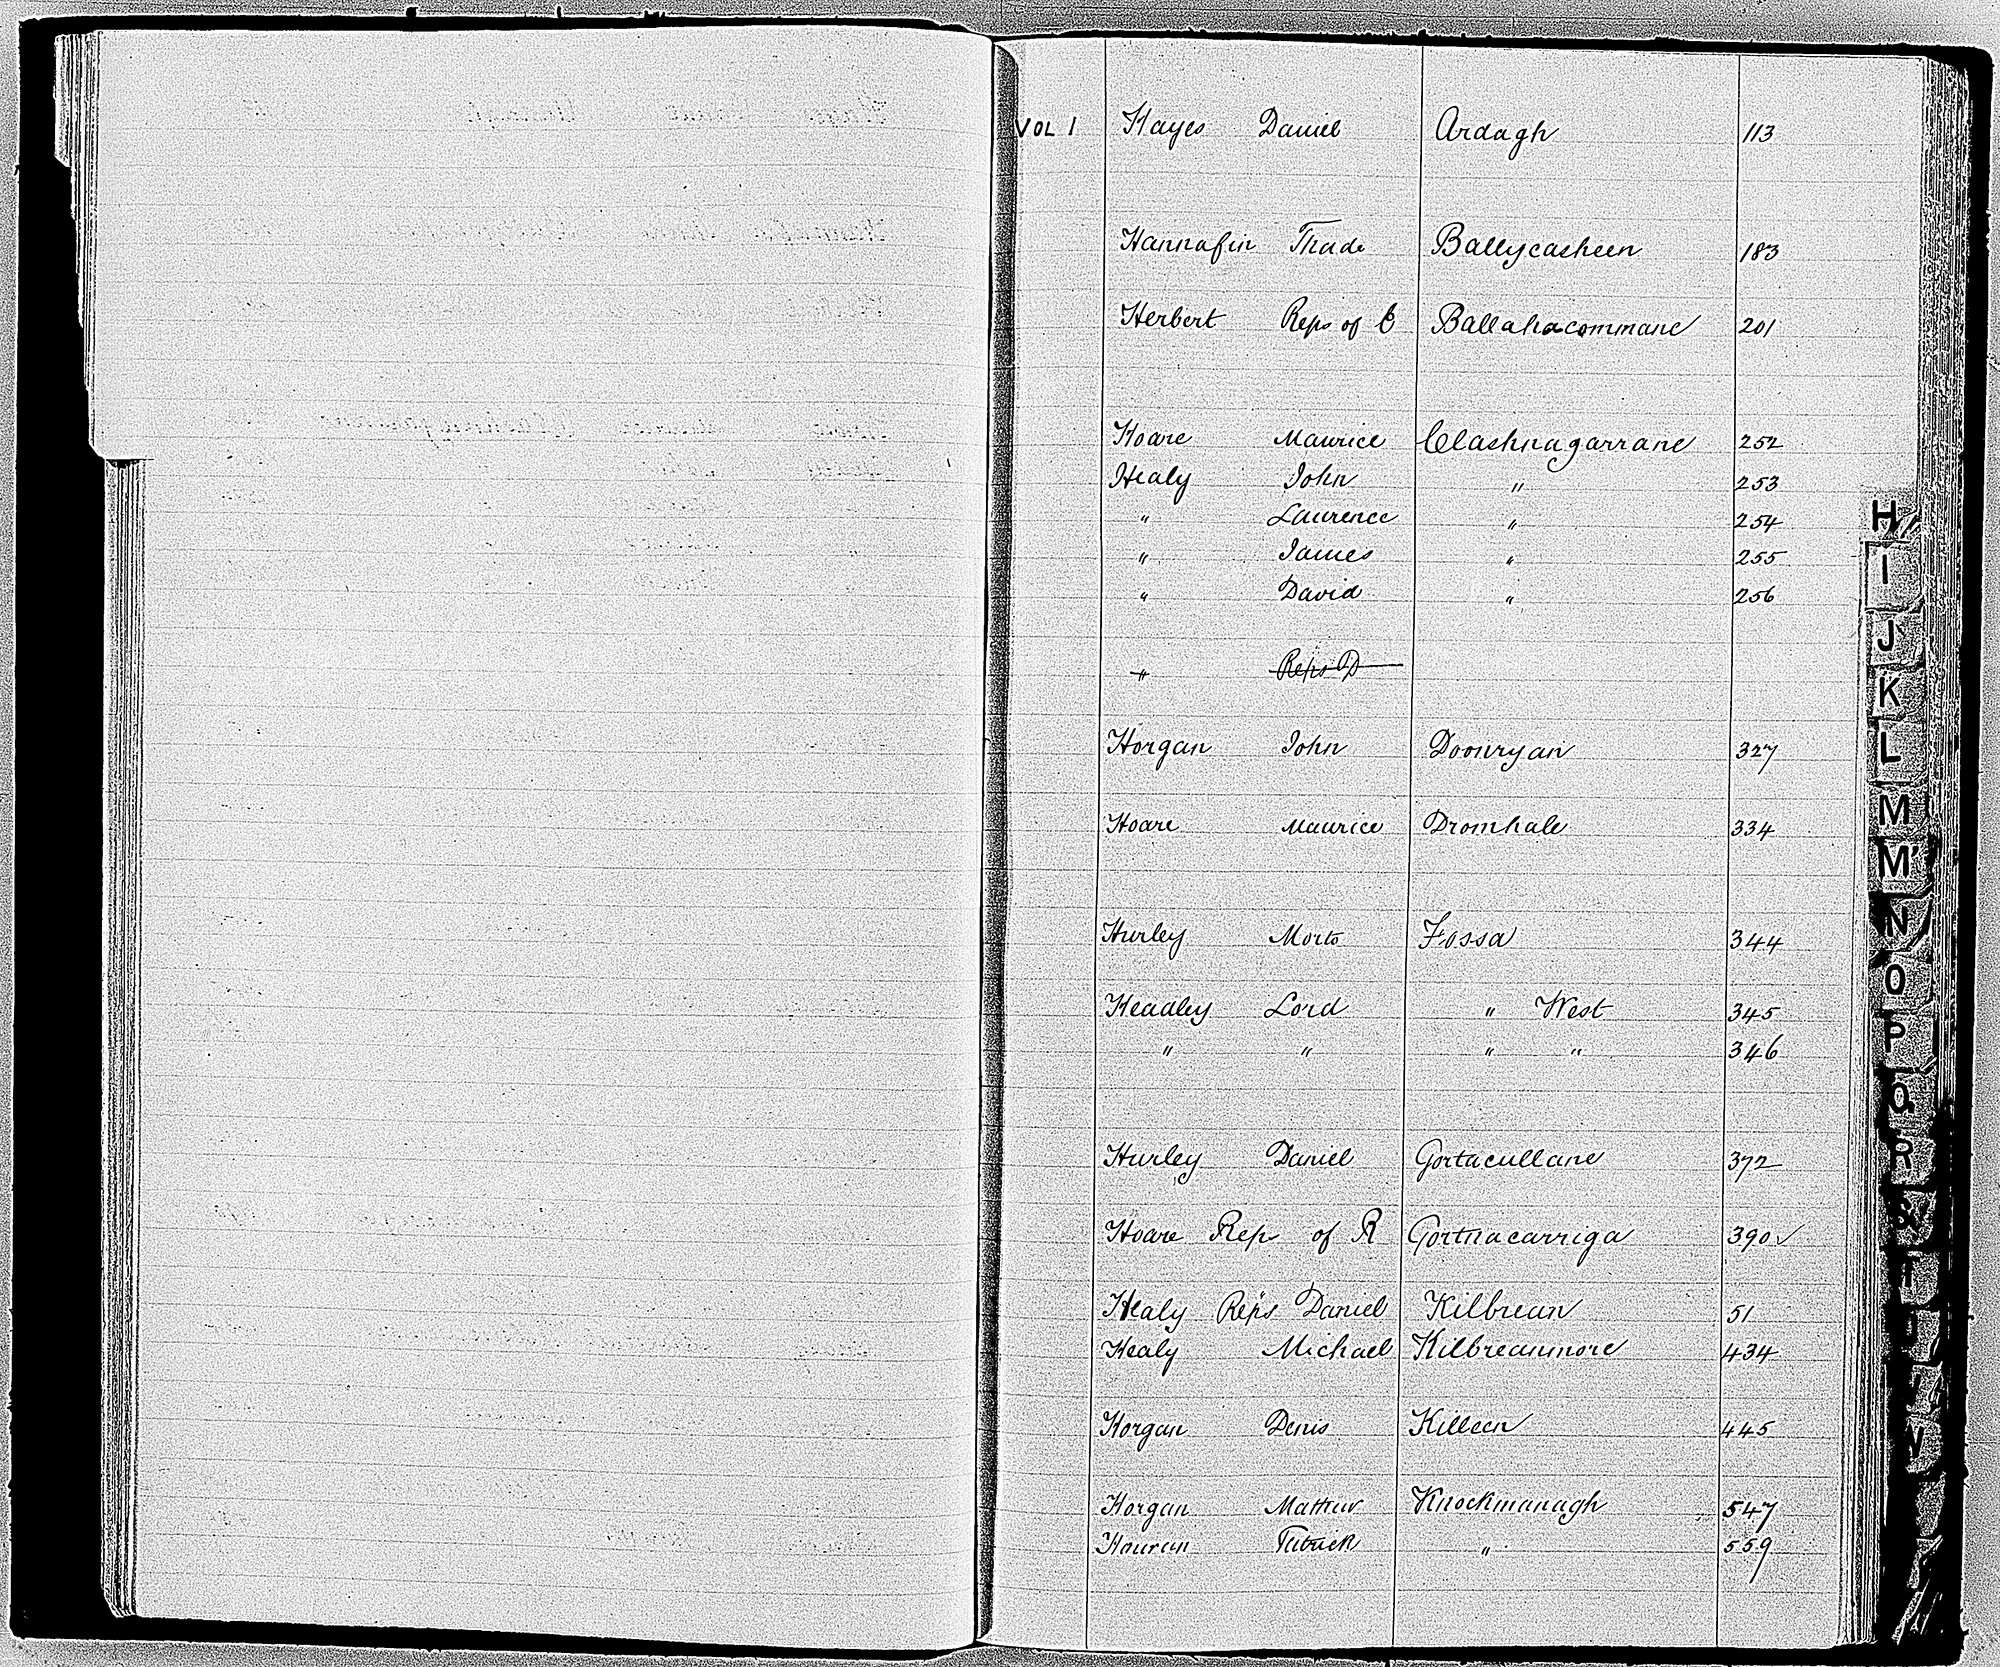 VOL 1 Hayes Daniel Ardagh 113
Hannafin Thade Ballycasheen 183
Herbert Reps of C Ballahacommane 201
Hoare Maurice Clashnagarrane 252
Healy John " 253
" Laurence " 254
" James " 255
" David " 256
" Reps D
Horgan John Doonryan 327
Hoare Maurice Dromhale 334
Hurley Morto Fossa 344
Headley Lord " West 345
" " " " 346
Hurley Daniel Gortacullane 372
Hoare Reps of R Gortnacarriga 390 ✓
Healy Reps Daniel Kilbrean 51
Healy Michael Kilbreanmore 434
Horgan Denis Killeen 445
Horgan Matthew Knockmanagh 547
Patrick " 559
H
I
J
K
L
M
M'
N
O
P
Q
R
S
T
W